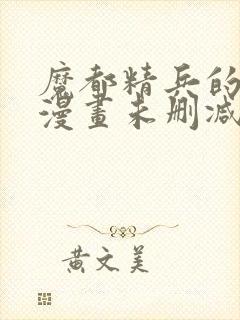 魔都精兵的
漫畫未删减
黄文美